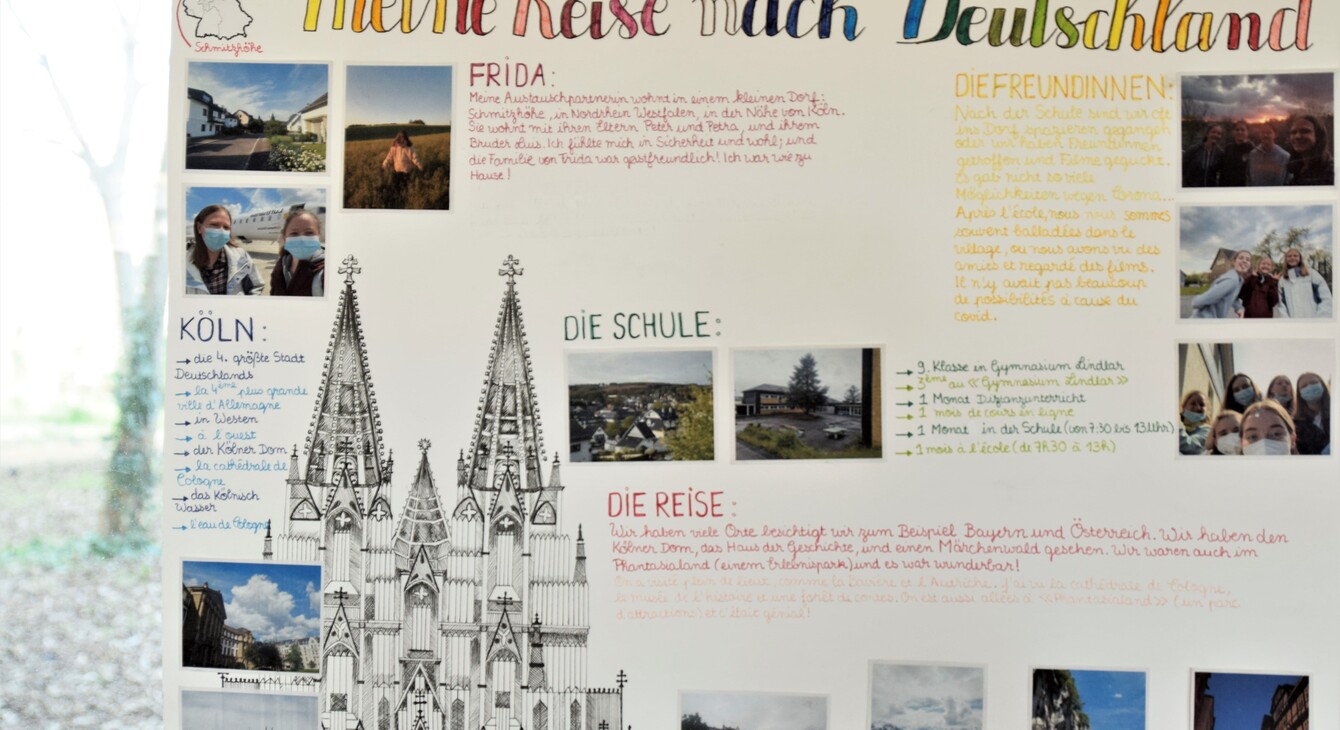 Meine Reise nach Deutschland
Schmitzhöhe
FRIDA:
Meine Austauschpartnerin wohnt in einem kleinen Dorf:
Schmitzhöhe, in Nordrhein Westfalen, in der Nähe von Köln.
Sie wohnt mit ihren Eltern Peter und Petra, und ihrem
Bruder aus. Ich fühlte mich in Sicherheit und wohl; und
die Familie von Frida war gastfreundlich! Ich war wie zu
Hause!
DIE FREUNDINNEN:
Nach der Schule sind wir oft
ins Dorf spazieren gegangen
oder wir haben Freundinnen
getroffen und Filme geguckt.
Es gab nicht so viele
Möglichkeiten wegen Corona...
Après l'école, nous nous sommes
souvent balladées dans le
village, ou nous avons vu des
amies et regardé des films.
Il n'y avait pas beaucoup
de possibilités à cause du
covid.
KÖLN:
→ die 4. größte Stadt
Deutschlands
→ la 4ème plus grande
ville d'Allemagne
→ in Westen
→ à l'ouest
→ der Kölner Dom
→ la cathédrale de
Cologne
→ das Kölnisch
Wasser
→ l'eau de Cologne
DIE SCHULE:
→ 9. Klasse in Gymnasium Lindlar
→ 3ème au «Gymnasium Lindlar»
→ 1 Monat Distanzunterricht
→ 1 mois de cours en ligne
→ 1 Monat in der Schule (von 7:30 bis 13 Uhr)
→ 1 mois à l'école (de 7h30 à 13h)
DIE REISE:
Wir haben viele Orte besichtigt wir zum Beispiel Bayern und Österreich. Wir haben den
Kölner Dom, das Haus der Geschichte, und einen Märchenwald gesehen. Wir waren auch im
Phantasialand (einem Erlebnispark) und es war wunderbar!
On a visité plein de lieux, comme la Bavière et l'Autriche. J'ai vu la cathédrale de Cologne,
le musée de l'histoire et une forêt de contes. On est aussi allées à «Phantasialand» (un parc
d'attractions) et c'était génial!